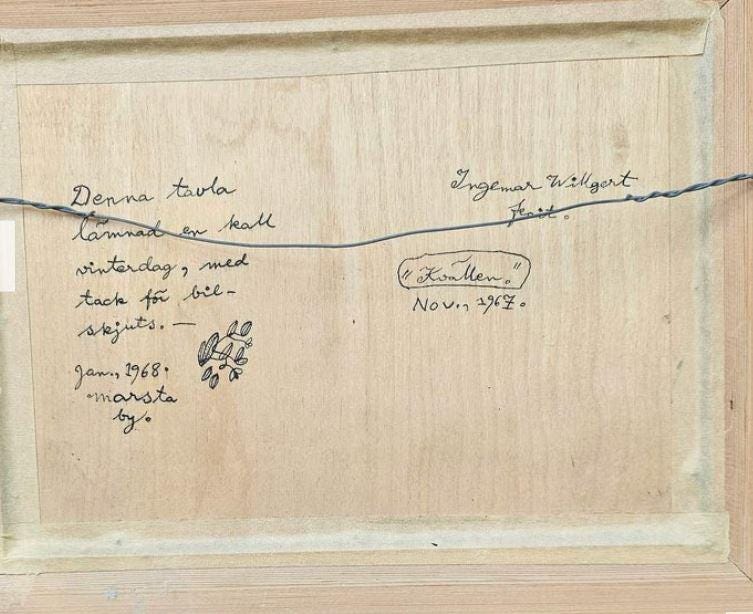 Denna tavla
lämnad en kall
vinterdag, med
tack för bil-
skjuts. —
Jan., 1968.
Marsta
by.
Ingemar Willgert
fecit.
"Kvällen."
Nov., 1967.